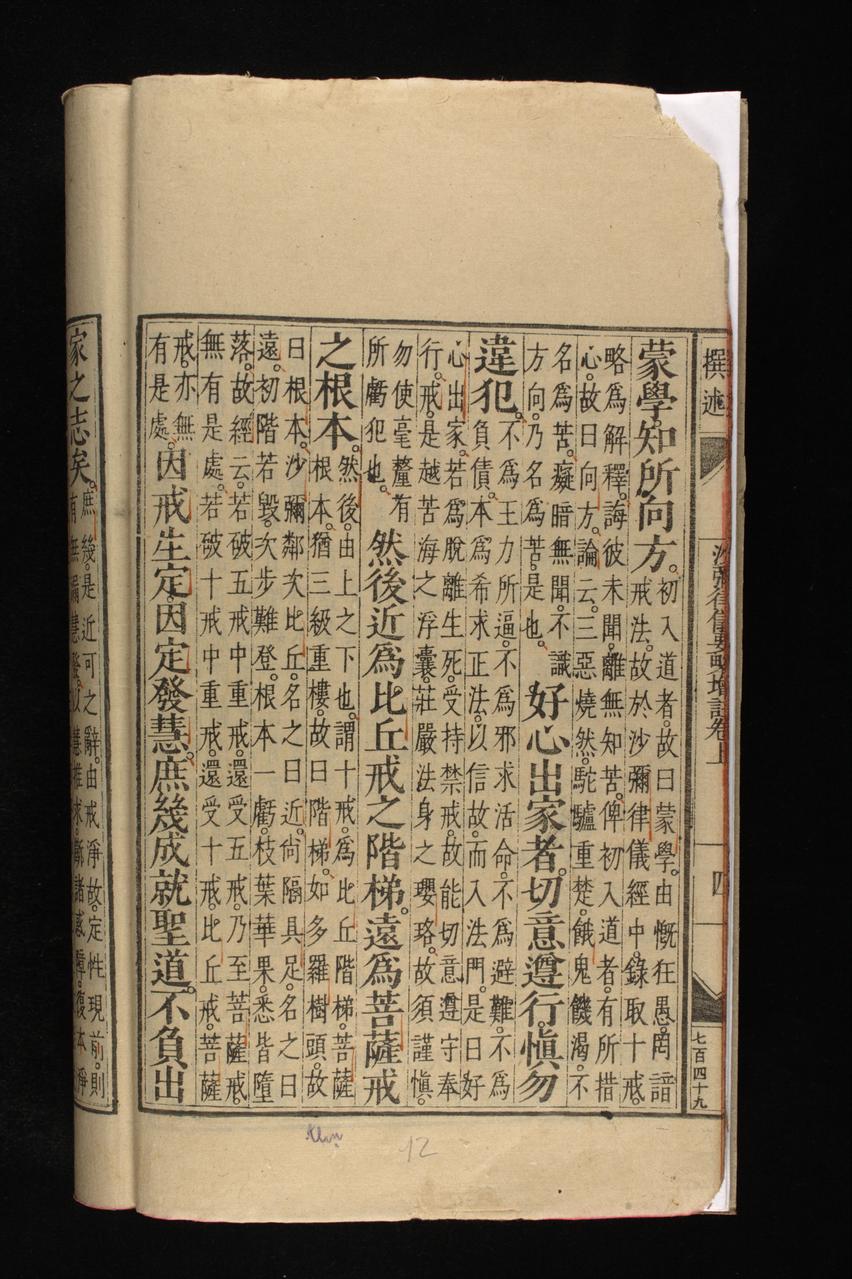 撰述
沙彌律儀要畧增註卷上
四
七百四十九
蒙學知所向方。初入道者。故曰蒙學。由慨狂愚。罔諳
戒法。故於沙彌律儀經中。錄取十戒。
略為解釋。誨彼未聞。離無知苦。俾初入道者。有所措
心。故曰向方。論云。三惡燒然。駝驢重楚。餓鬼饑渴。不
名為苦。癡暗無聞。不識
方向。乃名為苦。是也。好心出家者。切意遵行。愼勿
違犯。不為王力所逼。不為邪求活命。不為避難。不為
負債。本為希求正法。以信故。而入法門。是曰好
心出家。若為脫離生死。受持禁戒。故能切意遵守奉
行。戒是越苦海之浮囊。莊嚴法身之瓔珞。故須謹愼。
勿使毫釐有
所虧犯也。然後近爲比丘戒之階梯。遠爲菩薩戒
之根本。然後。由上之下也。謂十戒。為比丘階梯。菩薩
根本。猶三級重樓。故曰階梯。如多羅樹頭。故
曰根本。沙彌鄰次比丘。名之曰近。尙隔具足。名之曰
遠。初階若毀。次步難登。根本一虧。枝葉華果。悉皆墮
落。故經云。若破五戒中重戒。還受五戒。乃至菩薩戒。
無有是處。若破十戒中重戒。還受十戒。比丘戒。菩薩
戒。亦無
有是處。因戒生定。因定發慧。庶幾成就聖道。不負出
家之志矣。庶幾。是近可之辭。由戒淨故。定性現前。則
有無漏慧發。以慧推求。斷諸惑障。復本淨
12